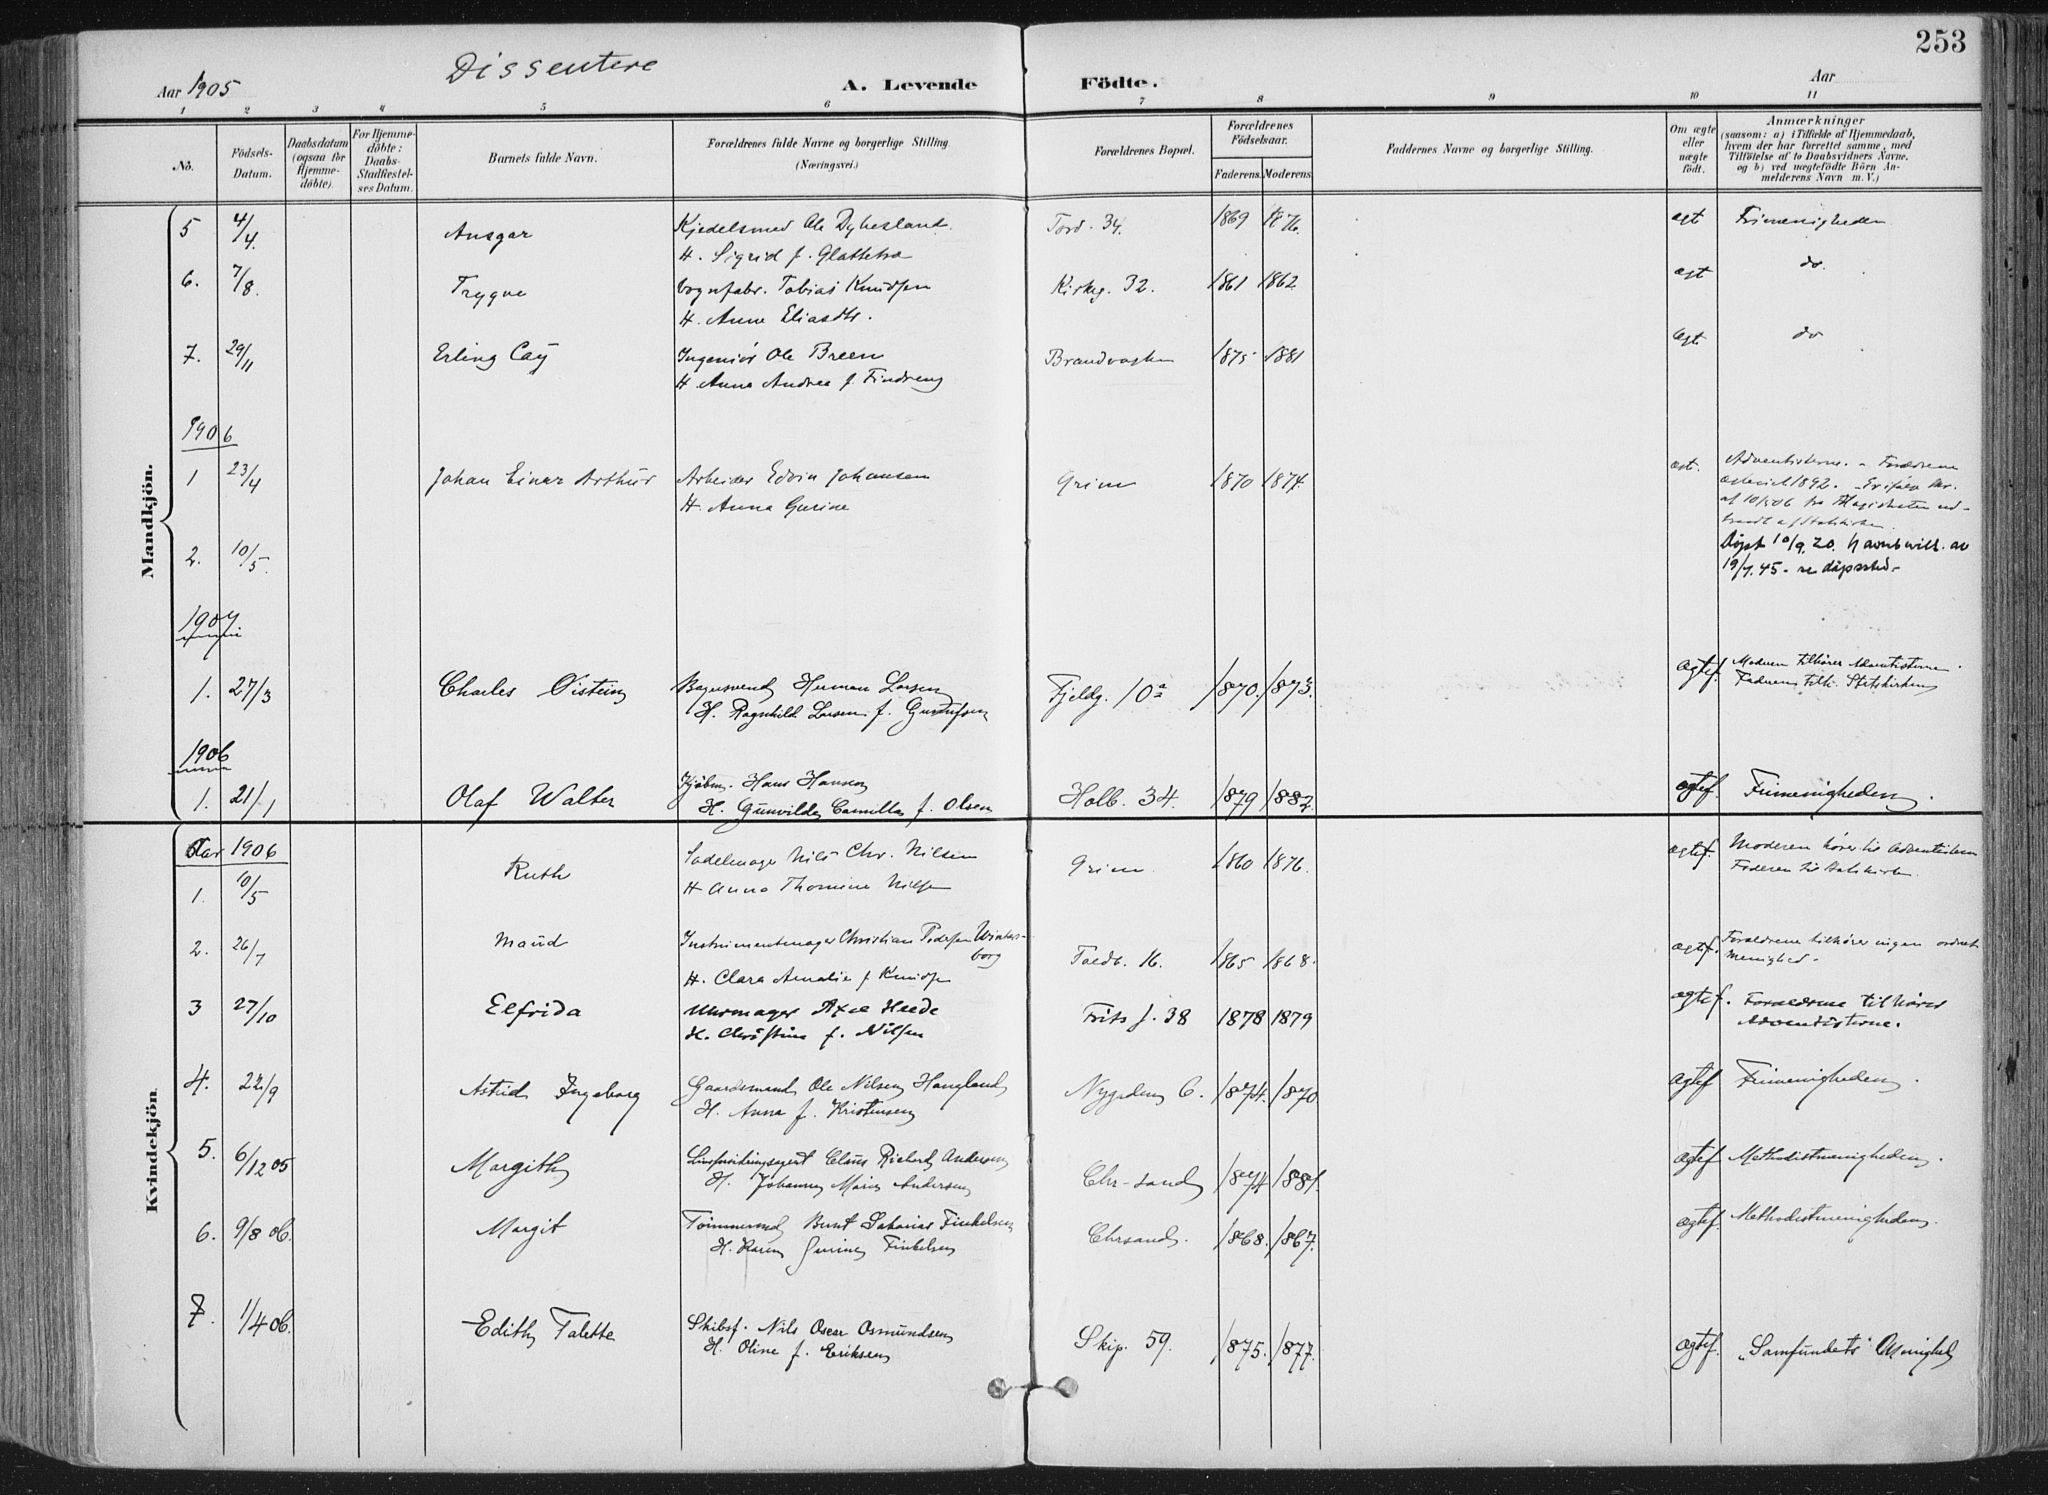 253
Dissentere
Aar 1905
A. Levende Födte.
Aar
1 2 3 4 5 6 7 8 9 10 11
No.
Födsels-Datum.
Daabsdatum (ogsaa for Hjemme-døbte).
For Hjemme-döbte: Daabs-Stadfæstel-ses Datum.
Barnets fulde Navn.
Forældrenes fulde Navne og borgerlige Stilling. (Næringsvei.)
Forældrenes Bopæl.
Forældrenes Födselsaar.
Faderens. Moderens.
Faddernes Navne og borgerlige Stilling.
Om ægte eller uægte födt.
Anmærkninger
(saasom: a) i Tilfælde af Hjemmedaab,
hvem der har forrettet samme, med
Tilföielse af to Daabsvidners Navne,
og b) ved uægtefödte Börn An-
melderens Navn m. V.)
Mandkjön.
5 4/4 Ansgar Kjedelsmed Ole Dybesland Tord. 34. 1869 1876. ægt Frimenigheden
H. Sigrid f. Glattetre
6. 7/8. Trygve Vognfabr. Tobias Knudsen Kirkeg. 32. 1861 1862 ægt do.
H. Anne Eliasdtr.
7. 29/11 Erling Cay Ingeniör Ole Breen Brandvagten 1875 1881 ægt do
H Anna Andrea f.
1906
1 23/4 Johan Einar Arthur Arbeider Edvin Johansen Grim 1870 1874. ægt. Adventisterne. - Forældrene
H. Anna Gurine
1892.
af 10/5 06 fra Magistraten ud-
af Statskirken.
2. 10/5. Döpt 10/9. 20. av
19/7. 45. - se dåpssted -
1907
1. 27/3 Charles Öistein Bagersvend Herman Larsen Fjeldg. 10 a 1870. 1873. ægtef. Moderen tilhører Adventisterne.
H. Ragnhild Larsen f. Gustafsen Faderen tilh. Statskirken
1906
1. 21/1 Olaf Walter Kjöbm. Hans Hansen Holb. 34. 1879 1882. ægtef. Frimenigheden.
H. Gunvilde Camilla f. Olsen
Kvindekjön
Aar 1906
1. 10/5 Ruth Sadelmager Nils Chr. Nilsen Grim 1860 1876. ægtef. Moderen hører til Adventisterne
H Anna Thomine Nilsen Faderen til Statskirken.
2. 26/7 Maud Instrumentmager Christian Pedersen Winters-borg Toldb. 16. 1865 1868. ægtef. Forældrene tilhører ingen ordnet
H. Clara Amalie f Knudsen menighed.
3 27/10 Elfrida Uhrmager Axel Heede Frits J. 38 1878 1879 ægtef. Forældrene tilhører
H. Christine f. Nilsen Adventisterne.
4. 22/9 Astrid Ingeborg Gaardsmand Ole Nilsen Haugland Nygaden 6. 1874. 1870. ægtef Frimenigheden.
H. Anna f. Kristensen
5. 6/12 05 Margith Claus Richard Andersen Chr-sand 1874 1881. ægtef Methodistmenigheden.
H. Johanne Marie Andersen
6. 9/8 06. Margit Tömmermd Bernt Sakarias Finkelsen Chrsand. 1868. 1867. ægtef Methodistmenigheden.
H. Karen Gurine Finkelsen
7. 1/4 06. Edith Talette Skibsf. Nils Oscar Osmundsen Skip. 59. 1875. 1877. ægtef. "Samfundets" Menighed
H. Oline f. Eriksen